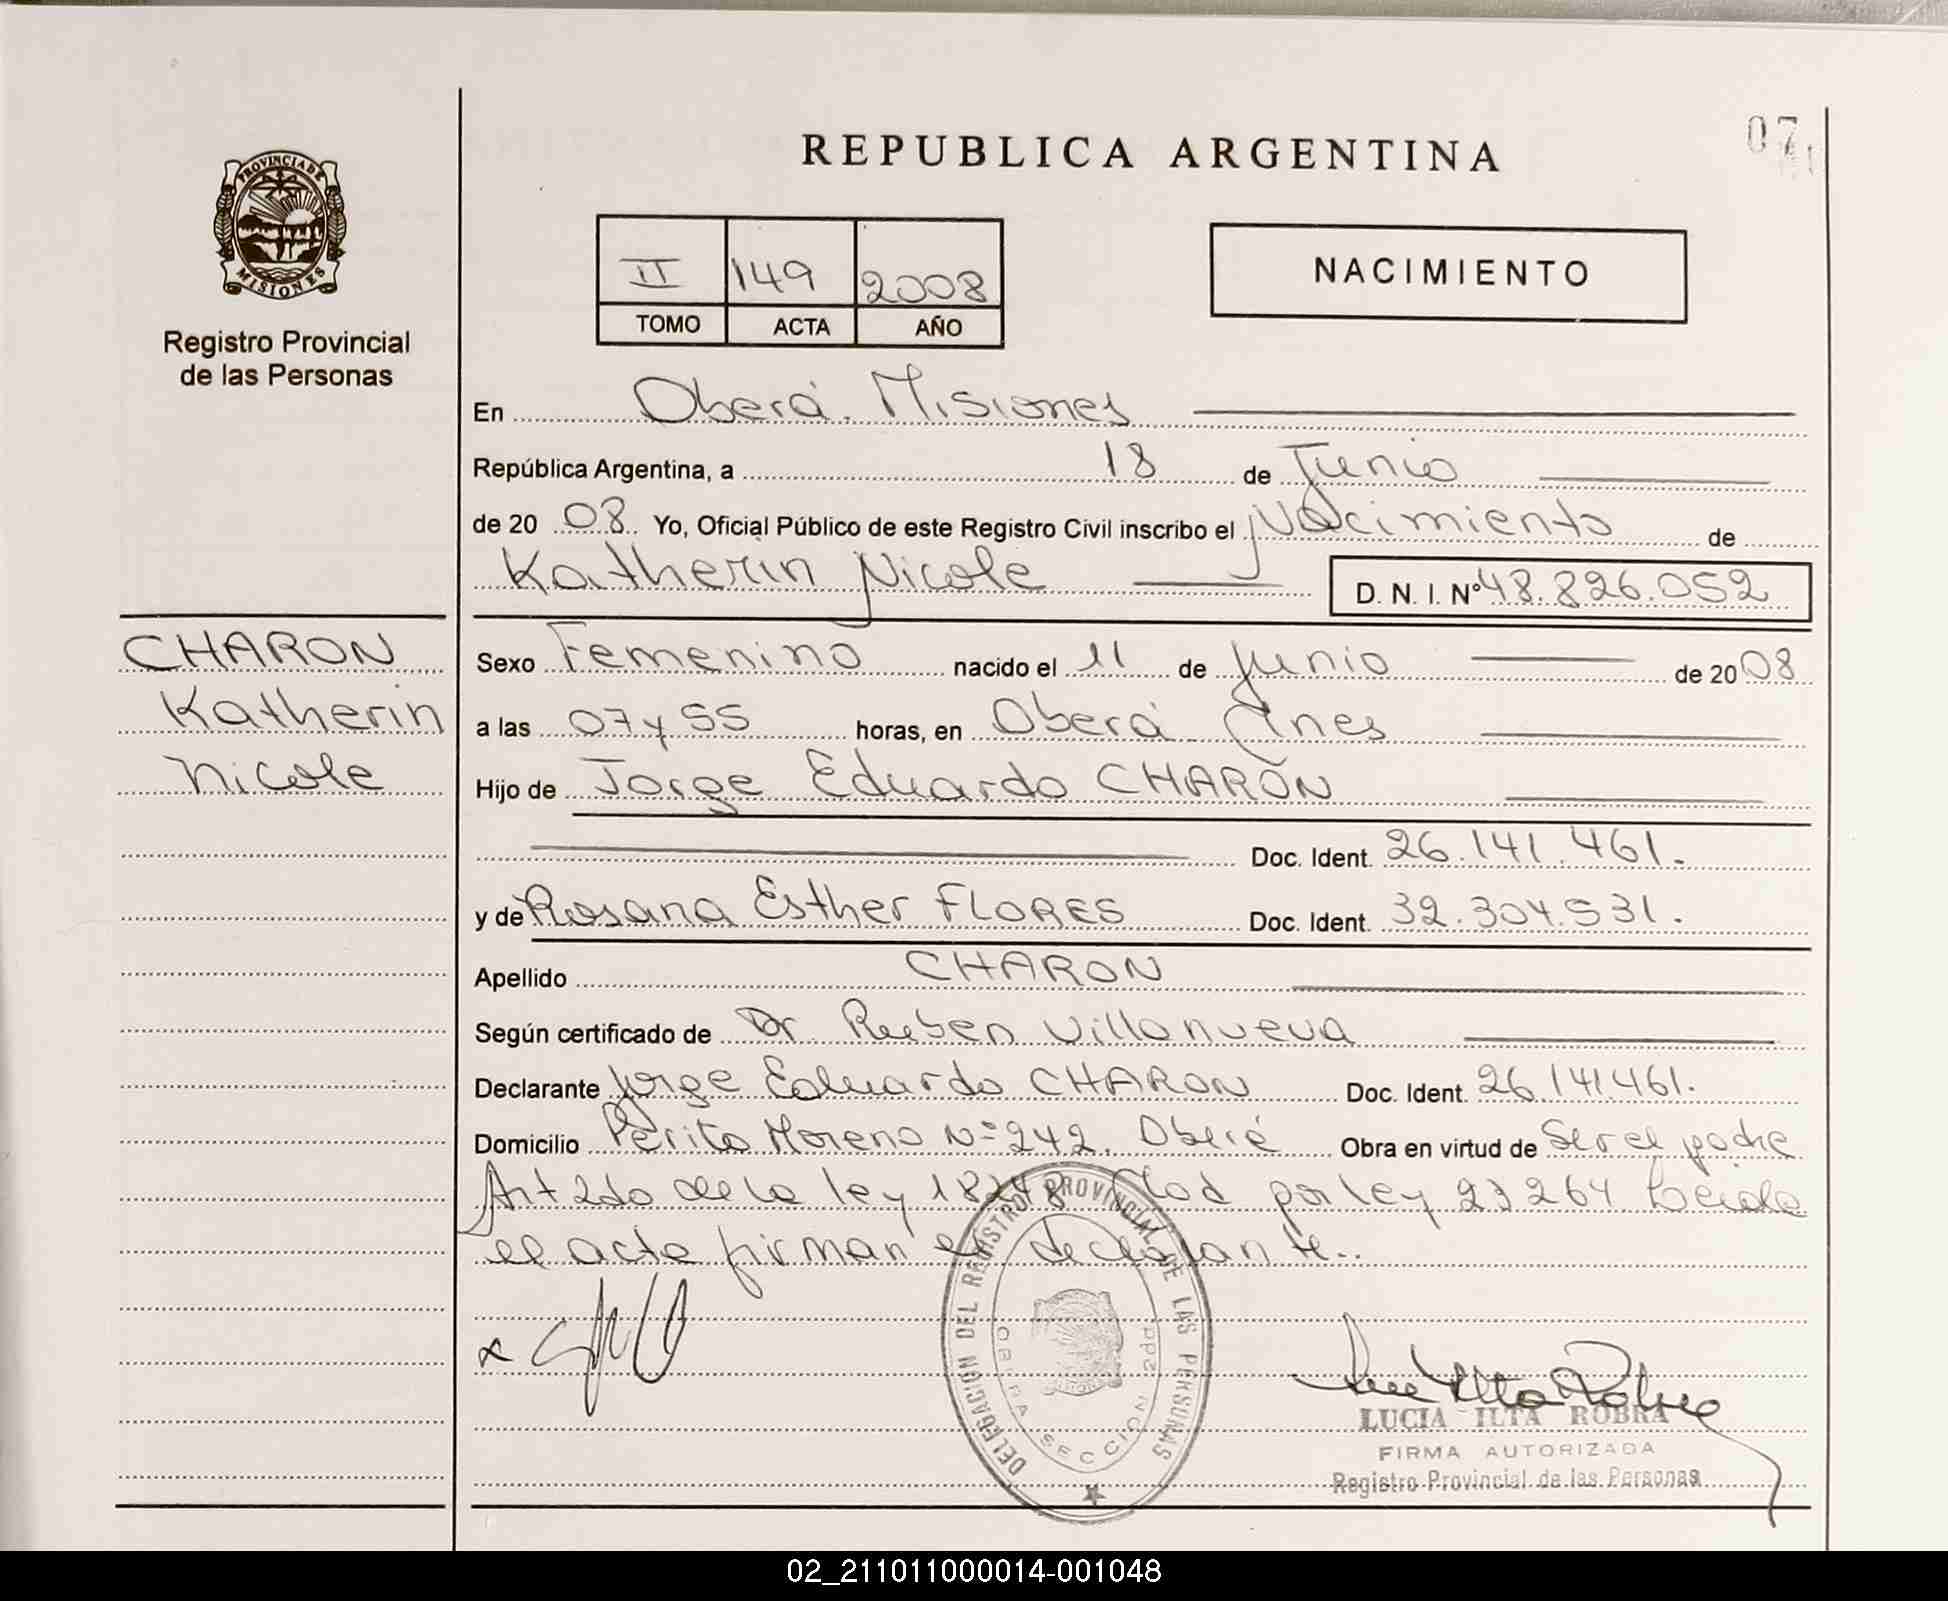 07
REPUBLICA ARGENTINA
PROVINCIA DE
MISIONES
Registro Provincial
de las Personas
II 149 2008
TOMO ACTA AÑO
NACIMIENTO
En Oberá. Misiones
República Argentina, a 18 de Junio
de 20 08. Yo, Oficial Público de este Registro Civil inscribo el Nacimiento de
Katherin Nicole D. N. I. Nº 48.826.052
CHARON
Katherin
Nicole
Sexo Femenino nacido el 11 de Junio de 20 08
a las 07 y 55 horas, en Oberá Mnes
Hijo de Jorge Eduardo CHARON
Doc. Ident. 26.141.461.
y de Rosana Esther FLORES Doc. Ident. 32.304.531.
Apellido CHARON
Según certificado de Dr Ruben Villanueva
Declarante Jorge Eduardo CHARON Doc. Ident. 26.141.461.
Domicilio Perito Moreno Nº 242. Oberá Obra en virtud de Ser el padre
Art 2do de la ley 18248 Mod por ley 23264 Leida
el acta firman el declarante..
x
DELEGACION DEL REGISTRO PROVINCIAL DE LAS PERSONAS
OBERA SECCION 2da.
LUCIA ILTA ROBRA
FIRMA AUTORIZADA
Registro Provincial de las Personas
02_211011000014-001048